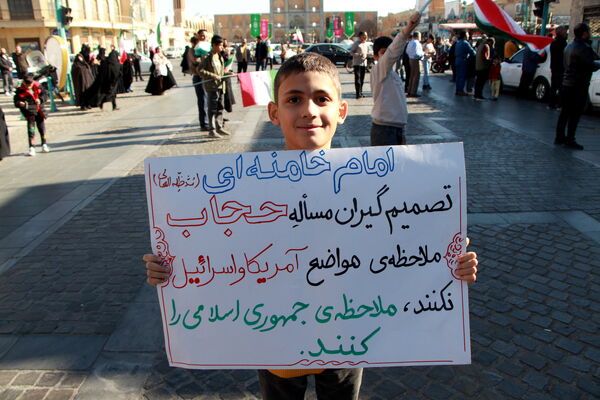 امام خامنه‌ای (مدظله العالی)
تصمیم گیران مسأله‌ِ حجاب
ملاحظه‌ی مواضع آمریکا و اسرائیل
نکنند، ملاحظه‌ی جمهوری اسلامی را
کنند.